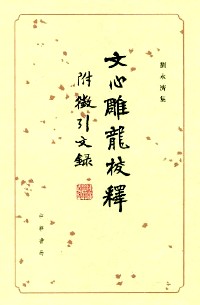 劉永濟集
文心雕龍校釋
附徵引文錄
中華書局